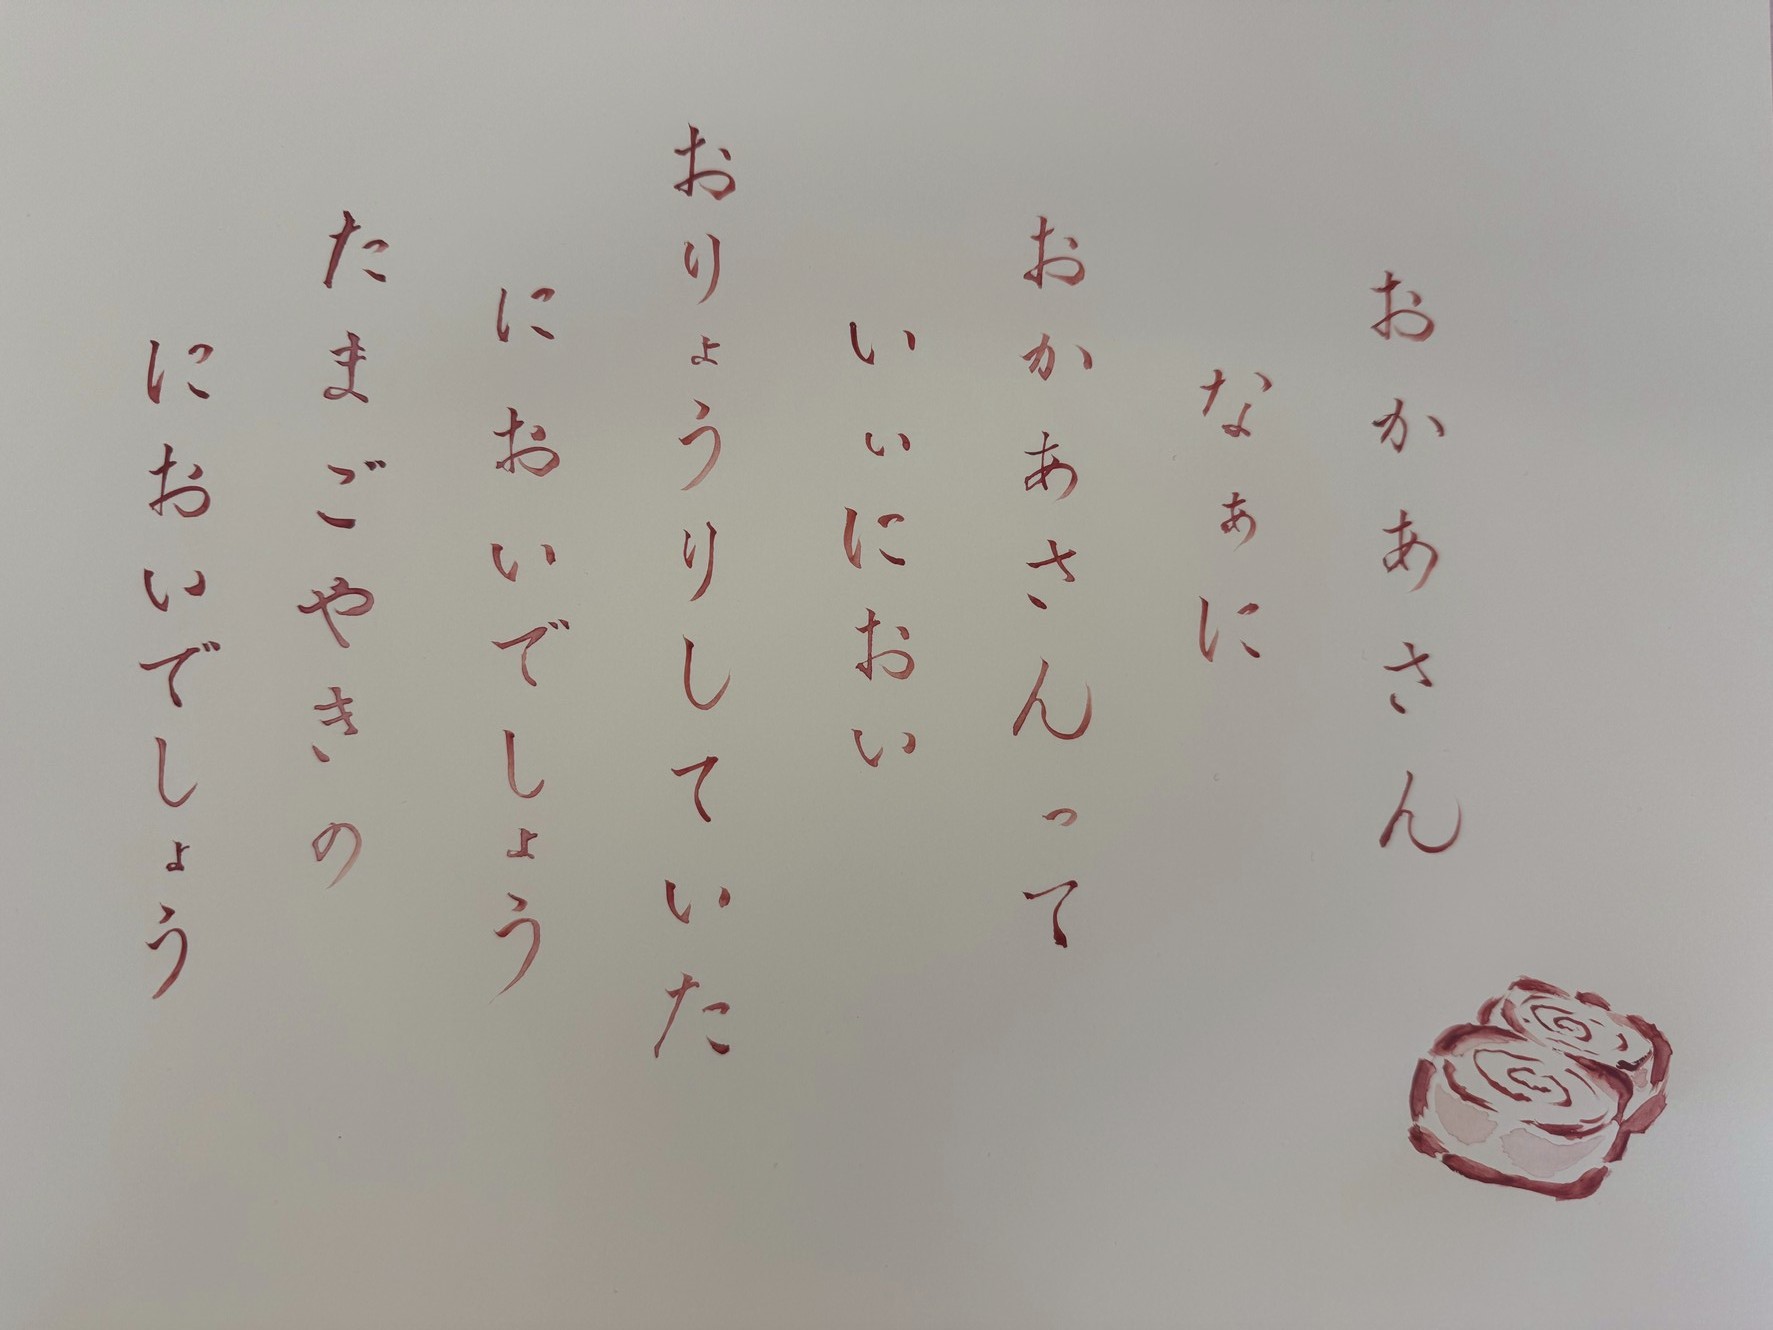 おかあさん
なぁに
おかあさんって
いぃにおい
おりょうりしていた
においでしょう
たまごやきの
においでしょう